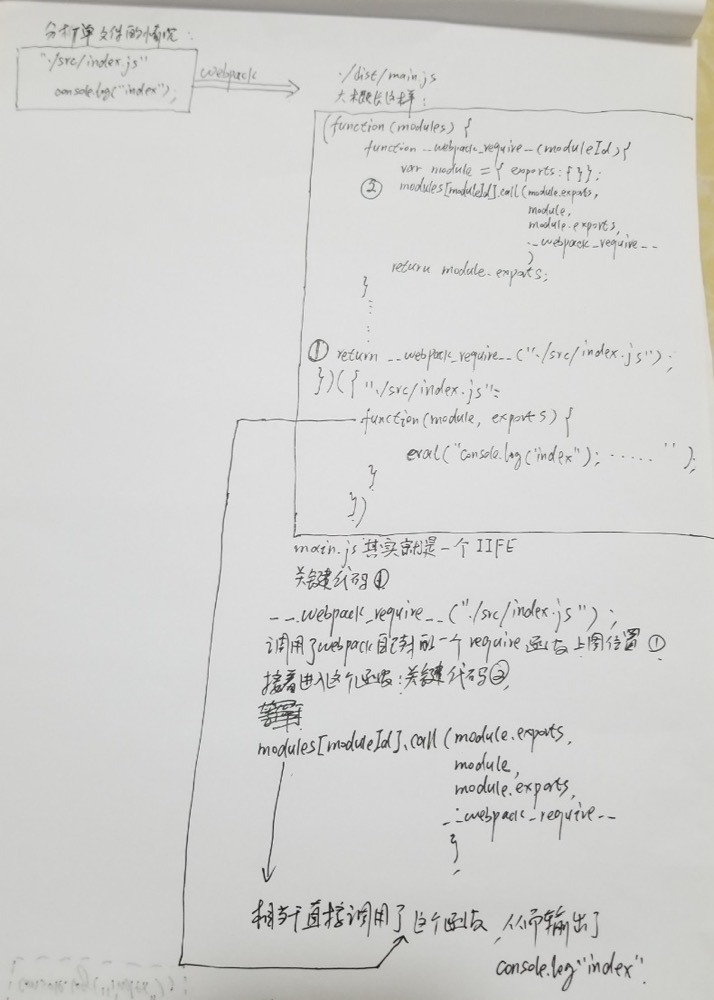 分析单文件的情况：
"./src/index.js"
console.log("index");
webpack
./dist/main.js
大概长这样：
(function(modules) {
function __webpack_require__(moduleId){
var module = { exports: {} };
② modules[moduleId].call(module.exports,
module,
module.exports,
__webpack_require__
)
return module.exports;
}
⋮
① return __webpack_require__("./src/index.js");
})({ "./src/index.js":
function(module, exports) {
eval("console.log("index"); ...... ");
}
})
main.js 其实就是一个 IIFE
关键代码①
__webpack_require__("./src/index.js");
调用了webpack自己的一个require函数 上图位置①
接着进入这个函数：关键代码②
modules[moduleId].call(module.exports,
module,
module.exports,
__webpack_require__
}
相当于直接调用了这个函数，从而输出了
console.log"index".